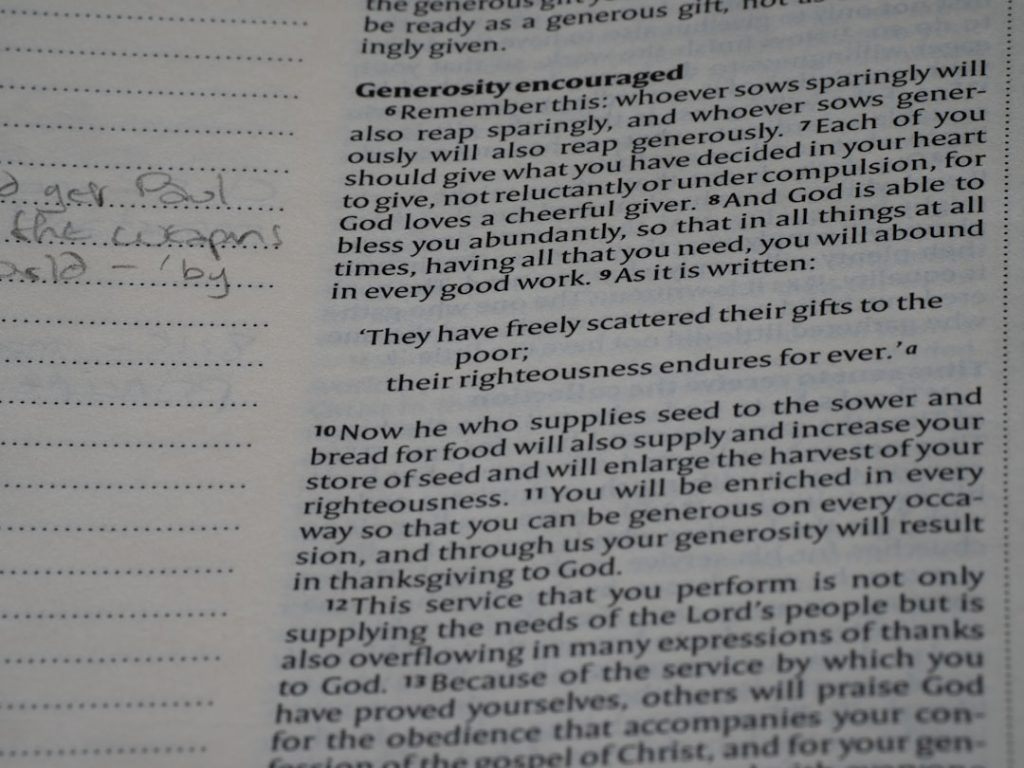 the generous gift
be ready as a generous gift, not as
ingly given.
Generosity encouraged
6Remember this: whoever sows sparingly will
also reap sparingly, and whoever sows gener-
ously will also reap generously. 7Each of you
should give what you have decided in your heart
to give, not reluctantly or under compulsion, for
God loves a cheerful giver. 8And God is able to
bless you abundantly, so that in all things at all
times, having all that you need, you will abound
in every good work. 9As it is written:
‘They have freely scattered their gifts to the
poor;
their righteousness endures for ever.’a
10Now he who supplies seed to the sower and
bread for food will also supply and increase your
store of seed and will enlarge the harvest of your
righteousness. 11You will be enriched in every
way so that you can be generous on every occa-
sion, and through us your generosity will result
in thanksgiving to God.
12This service that you perform is not only
supplying the needs of the Lord’s people but is
also overflowing in many expressions of thanks
to God. 13Because of the service by which you
have proved yourselves, others will praise God
for the obedience that accompanies your con-
fession of the gospel of Christ, and for your gen-
Paul
the weapons
– ‘by